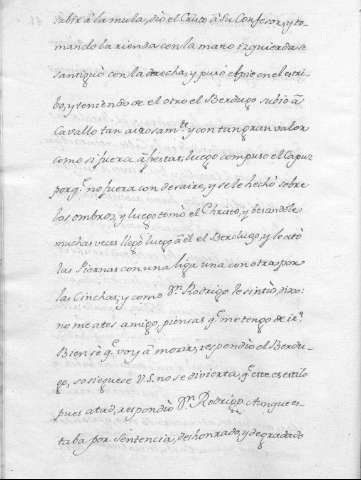 subir â la mula, dio el Cristo â su Confesor, y to-
mando la rienda con la mano izquierda se
santiguò con la derecha, y puso el pie en el estri-
bo, y teniendo de el otro el Berdugo subiò â
Cavallo tan airosamte y con tan gran valor
como si fuera â festar, luego compuso el Capuz
porq.e no fuera con desaire, y se le hechò sobre
los ombros, y luego tomò el Christo, y besandole
muchas veces llegò luego â èl el Berdugo, y le atò
las Piernas con una liga una con otra por
las Cinchas, y como Dn. Rodrigo lo sintiò, dixo:
no me ates amigo, piensas q.e me tengo de ir?
Bien sè q.e voy â morir, respondio el Berdu-
go, sosieguese V.S. no se divierta, q.e este es estilo
pues atad, respondiò Dn. Rodrigo. Aunque es-
taba por Sentencia, deshonrado, y degradado